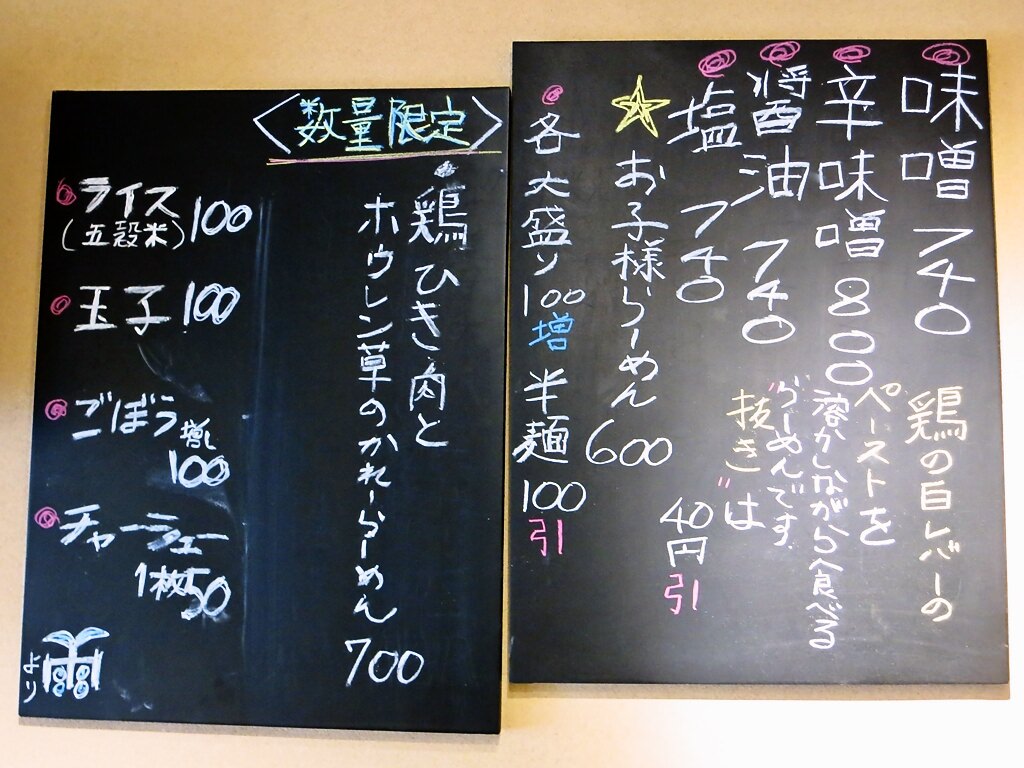 味噌 740
辛味噌 800
醤油 740
塩 740
鶏の白レバーの
ペーストを
溶かしながら食べる
らーめんです
"抜き"は
40円引
お子様らーめん 600
各大盛り100増 半麺100引
〈数量限定〉
鶏ひき肉と
ホウレン草のかれーらーめん
700
ライス 100
(五穀米)
玉子 100
ごぼう増し
100
チャーシュー
1枚50
雨より